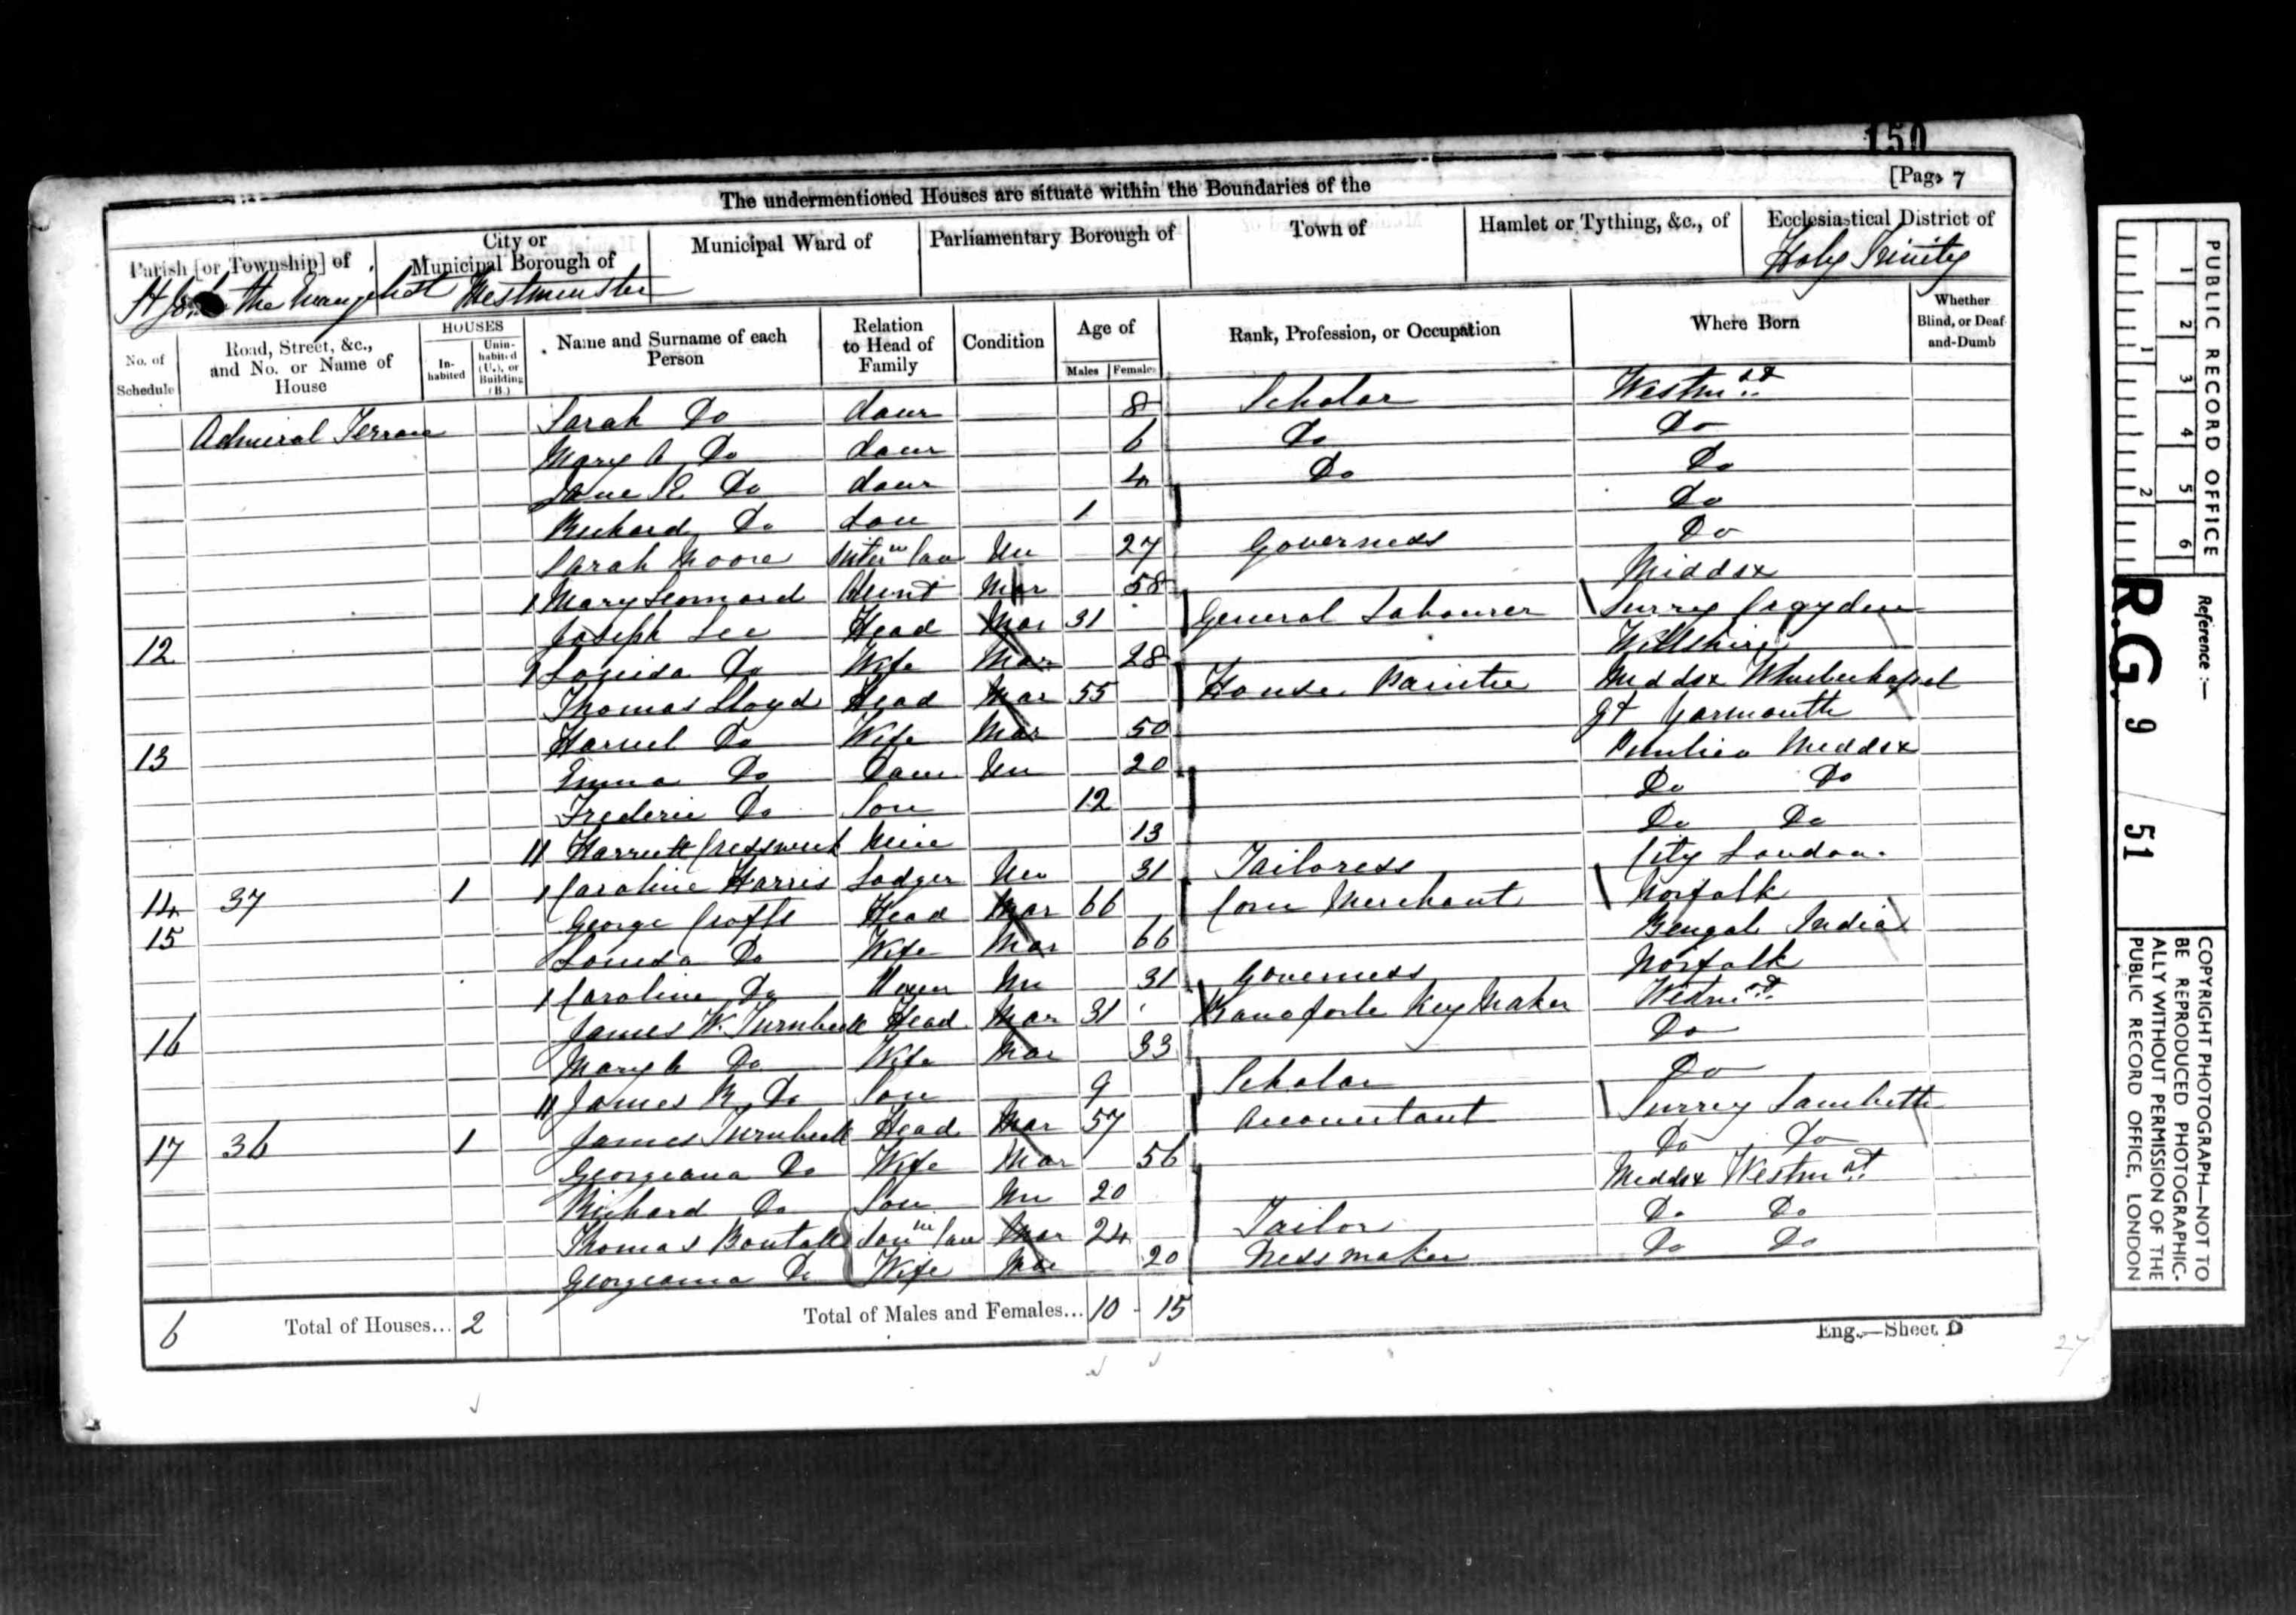 150
[Page 7
The undermentioned Houses are situate within the Boundaries of the
Parish [or Township] of
City or Municipal Borough of
Municipal Ward of
Parliamentary Borough of
Town of
Hamlet or Tything, &c., of
Ecclesiastical District of
the Evangelist Westminster Holy Trinity
No. of Schedule
Road, Street, &c., and No. or Name of House
HOUSES
In-habited
Unin-habited (U.), or Building (B.)
Name and Surname of each Person
Relation to Head of Family
Condition
Age of
Males
Females
Rank, Profession, or Occupation
Where Born
Whether Blind, or Deaf-and-Dumb
Admiral Terrace Sarah Do daur 8 Scholar Westmr
Mary A Do daur 6 Do Do
Jane E Do daur 4 Do Do
Richard Do son 1 Do
Sarah Moore Sister in law Un 27 Governess Do
Mary Leonard Aunt Mar 58 Middsx
12 Joseph Lee Head Mar 31 General Labourer Surrey
Louisa Do Wife Mar 28 Wiltshire
13 Thomas Lloyd Head Mar 55 House Painter Middsx Whitechapel
Do Wife Mar 50 Gt Yarmouth
Emma Do Daur Un 20 Pimlico Middsx
Frederic Do Son 12 Do Do
Harriett Niece 13 Do Do
14 37 1 Caroline Harris Lodger Un 31 Tailoress City London
15 George Crofts Head Mar 66 Corn Merchant Norfolk
Louisa Do Wife Mar 66 Bengal India
Caroline Do Un 31 Governess Norfolk
16 James W. Turnbull Head Mar 31 Pianoforte Key Maker Westmr
Mary A Do Wife Mar 33 Do
James R Do Son 9 Scholar Do
17 36 1 James Turnbull Head Mar 57 Accountant Surrey Lambeth
Georgeana Do Wife Mar 56 Do Do
Richard Do Son Un 20 Middsx Westmr
Thomas Son in law Mar 24 Tailor Do Do
Georgeana Do Wife Mar 20 Dressmaker Do Do
6 Total of Houses... 2 Total of Males and Females... 10 15
Eng.—Sheet D
27
PUBLIC RECORD OFFICE
1 2 3 4 5 6
1 2
Reference:—
R.G. 9 51
COPYRIGHT PHOTOGRAPH—NOT TO BE REPRODUCED PHOTOGRAPHICALLY WITHOUT PERMISSION OF THE PUBLIC RECORD OFFICE, LONDON